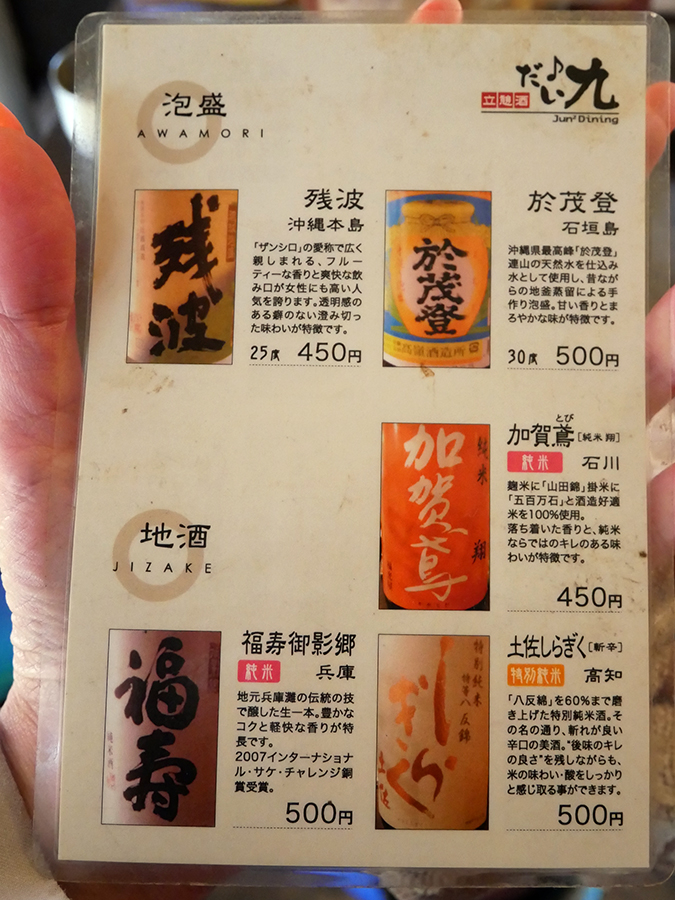 だい九
立憩酒
Jun² Dining
泡盛
AWAMORI
残波
残波
沖縄本島
「ザンシロ」の愛称で広く
親しまれる、フルー
ティーな香りと爽快な飲
み口が女性にも高い人
気を誇ります。透明感の
ある癖のない澄み切っ
た味わいが特徴です。
25度 450円
於茂登
髙嶺酒造所
於茂登
石垣島
沖縄県最高峰「於茂登」
連山の天然水を仕込み
水として使用し、昔なが
らの地釜蒸留による手
作り泡盛。甘い香りとま
ろやかな味が特徴です。
30度 500円
地酒
JIZAKE
加賀鳶
純米
翔
とび
加賀鳶[純米 翔]
純米 石川
麹米に「山田錦」掛米に
「五百万石」と酒造好適
米を100%使用。
落ち着いた香りと、純米
ならではのキレのある味
わいが特徴です。
450円
福寿
純米酒
福寿御影郷
純米 兵庫
地元兵庫灘の伝統の技
で醸した生一本。豊かな
コクと軽快な香りが特
長です。
2007インターナショナ
ル・サケ・チャレンジ銅
賞受賞。
500円
特別純米
特等八反錦
土佐
しらぎく
土佐しらぎく[斬辛]
特別純米 高知
「八反錦」を60%まで磨
き上げた特別純米酒。そ
の名の通り、斬れが良い
辛口の美酒。“後味のキレ
の良さ”を残しながらも、
米の味わい・酸をしっかり
と感じ取る事ができます。
500円